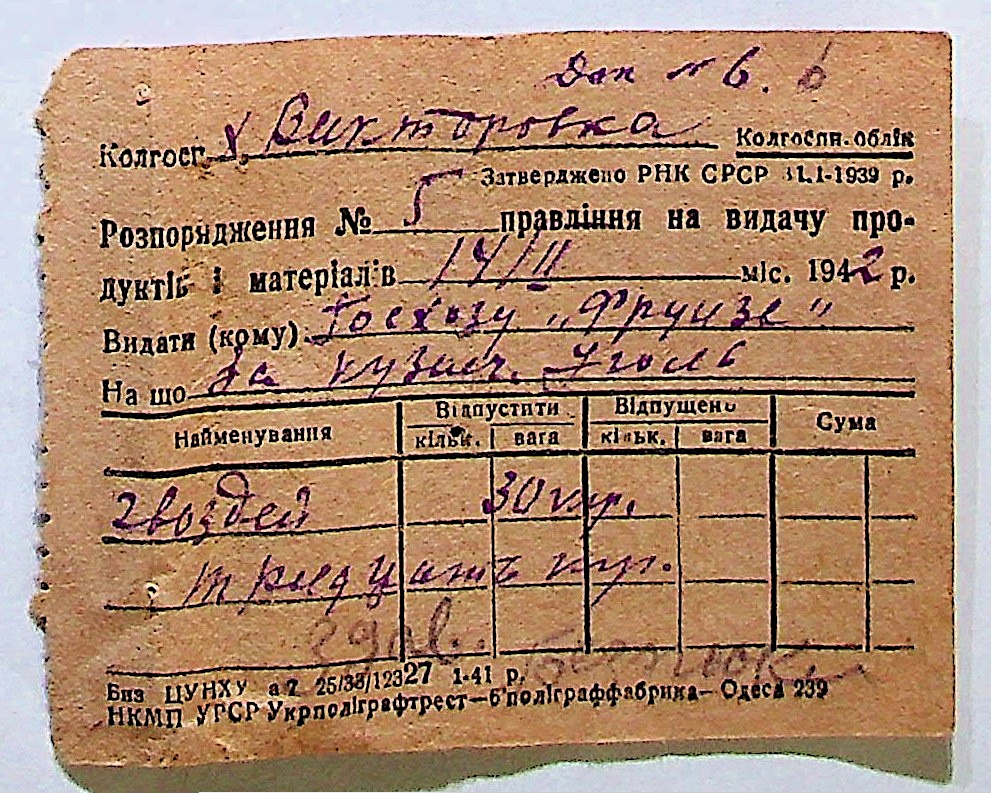 Док № 6. 6
Колгосп х. Викторовка Колгоспн. облік
Затверджено РНК СРСР 31.1-1939 р.
Розпорядження № 5 правління на видачу про-
дуктів і матеріалів 14/II міс. 1942 р.
Видати (кому) Госхозу „Фрунзе"
На що за кузнеч. уголь
Найменування Відпустити Відпущено Сума
кільк. вага кільк. вага
гвоздей 30 кгр.
тридцать кгр.
Здав.
Биз ЦУНХУ 25/33/12327 1-41 р.
НКМП УРСР Укрполіграфтрест—6 поліграффабрика—Одеса 239